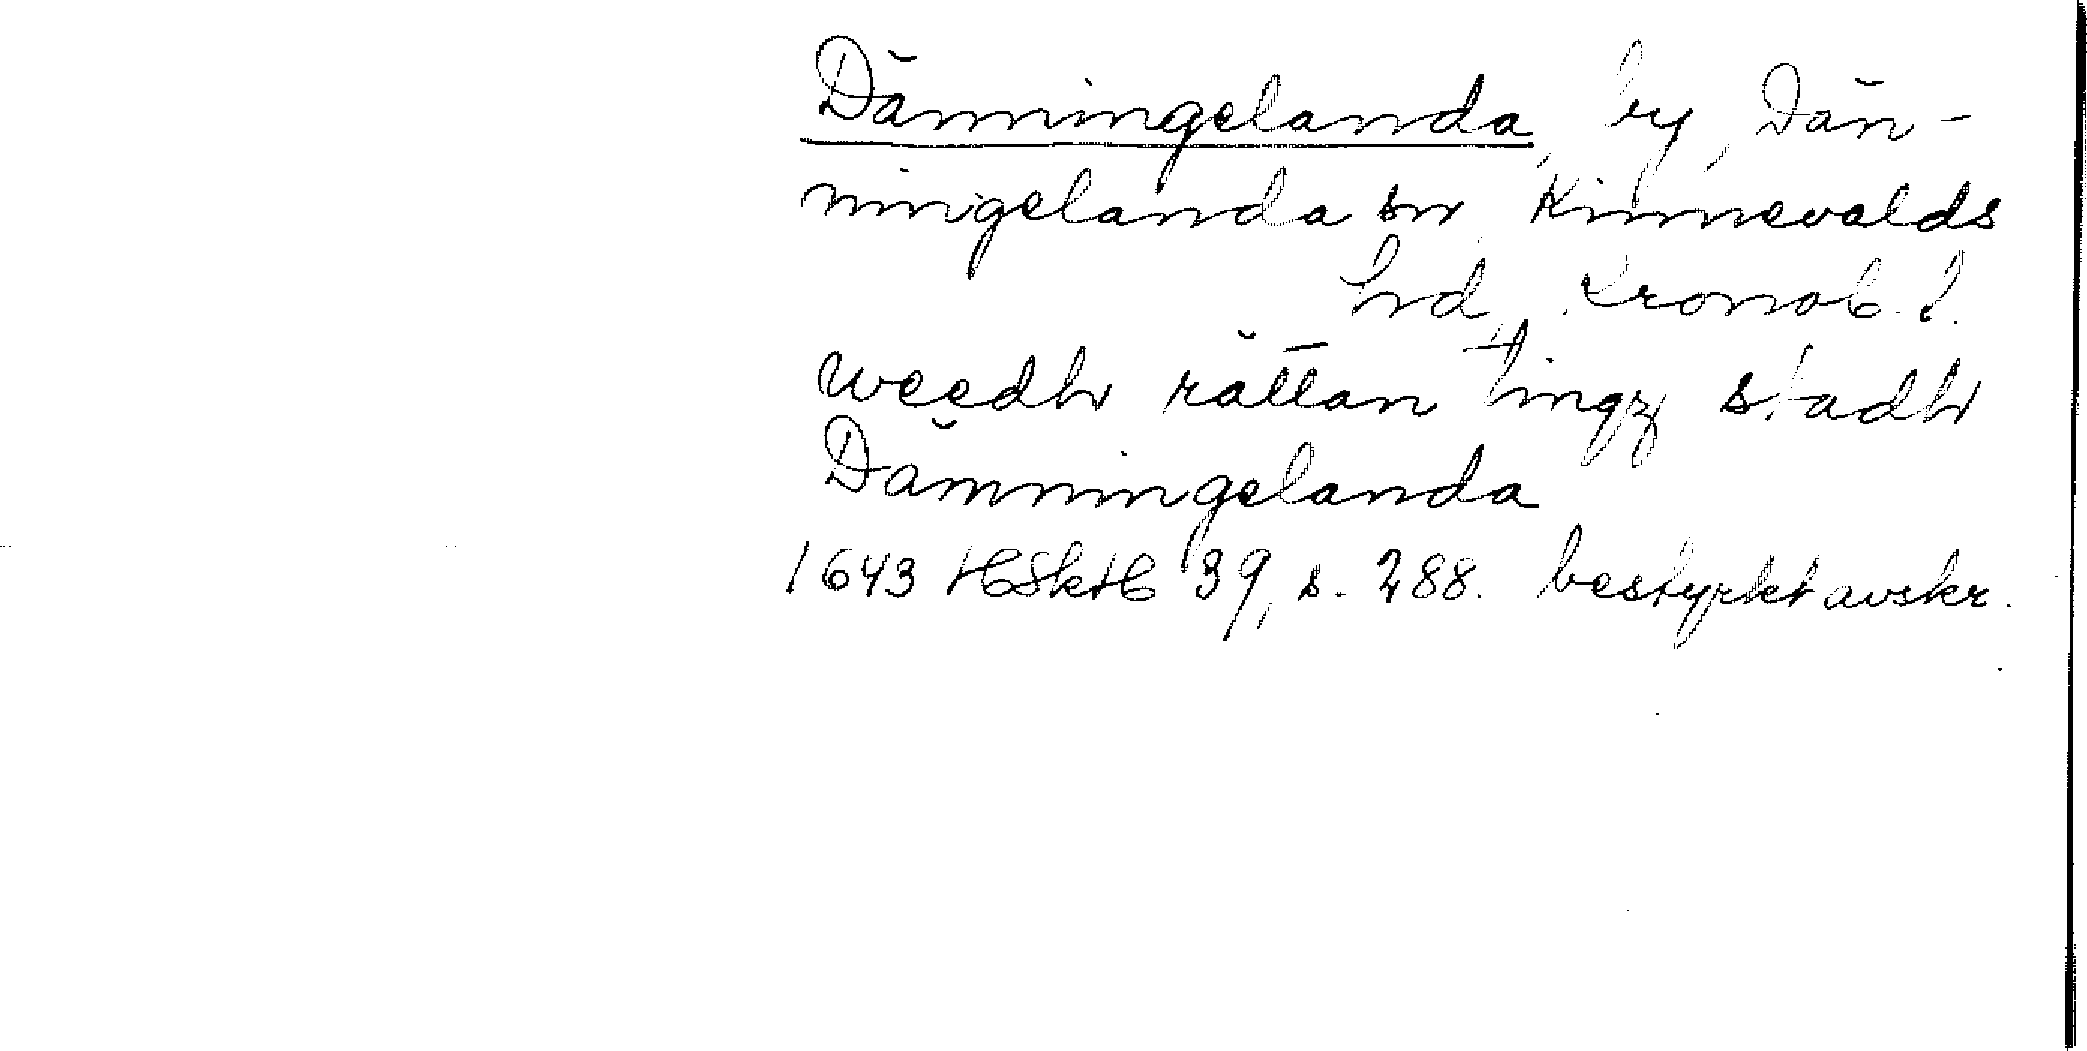 Dänningelanda, by, Dän-
ningelanda sn, Kinnevalds
hd, Kronob. l.
weedh rättan tingz stadh
Dämningelanda
1643 HSkH 39, s. 288. bestyrkt avskr.